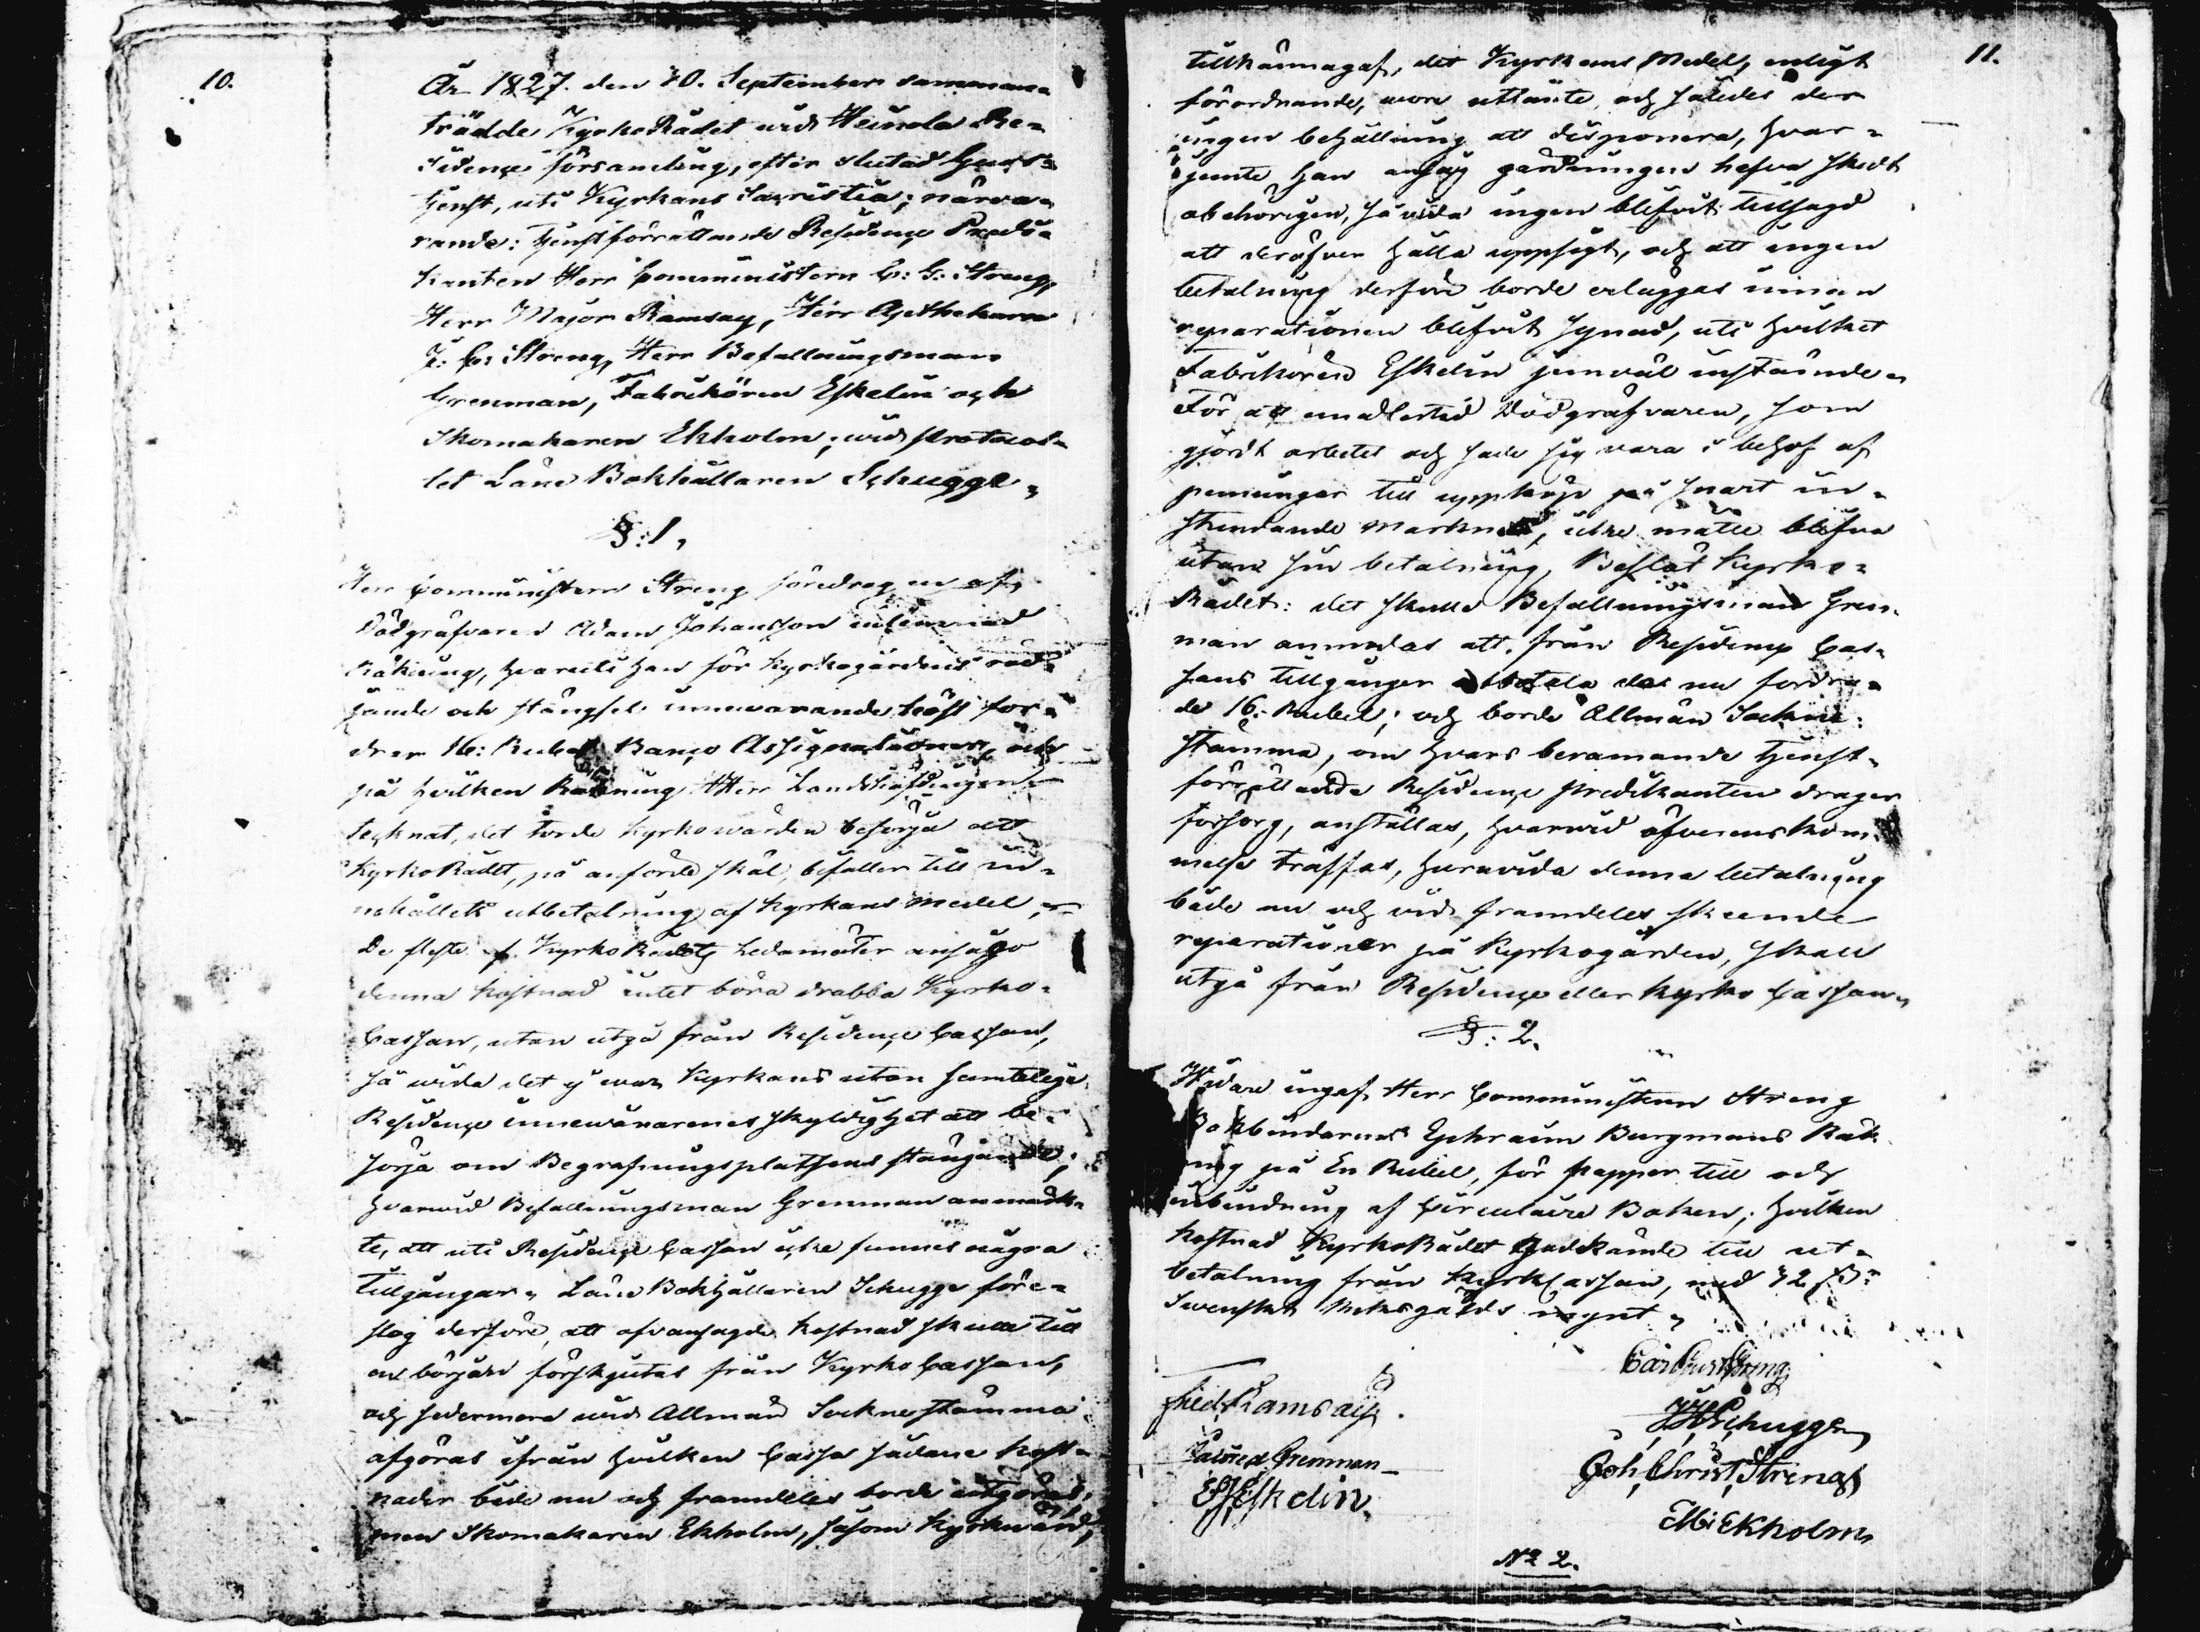 10.
År 1827. den 30. September samman=
trädde KyrkoRådet wid Heinola Re=
sidençe församling, efter slutad Guds=
tjenst, uti Kyrkans Sacristia; närva=
rande: tjenstförrättande Residençe Predi=
kanten Herr Comministern C: G: Streng,
Herr Major Ramsay, Herr Apothekaren
J: C: Streng, Herr Befallningsman
Grenman, Fabrikören Eskelin och
Skomakaren Ekholm; wid protocol=
let Läne Bokhållaren Schugge.
§: 1,
Herr Comministern Streng föredrog en af
Dödgräfvaren Adam Johansson inlemnad
Räkning, hvaruti han för kyrkogårdens
och stängsel innevarande höst for=
drar 16: Rubel Banco Assignationer, och
på hvilken Räkning Herr Landshöfdingen
tecknat, det torde kyrkowärden besörja att
KyrkoRådet, på anförde skäl, bifaller till in=
nehållets utbetalning af kyrkans medel
De fleste af KyrkoRådets Ledamöter ansågo
denna kostnad intet böra drabba Kyrko=
Cassan, utan utgå från Residençe Cassan,
så wida det ej war Kyrkans utan samtelige
Residençe innewånarenes skyldighet att be=
sörja om Begrafningsplatsens stängande;
hvarwid Befallningsman Grenman anmärk=
te, att uti Residençe Cassan icke funnes några
tillgångar. Läne Bokhållaren Schugge före=
slog derföre, att ofvansagde kostnad skulle till
en början förskjutas från Kyrko Cassan,
och sedermera wid Allmän Sockne stämma
afgöras ifrån hvilken Cassa sådane kost=
nader både nu och framdeles borde utgöras,
men Skomakaren Ekholm, såsom Kyrkwärd,
11.
tillkännagaf, det Kyrkans Medel, enligt
förordnande, woro utlänte, och således der
ingen behållning att disponera, hvar=
jemte han ansåg gärdningen hafva skedt
obehörigen, så vida ingen blifvit tillsagd
att deröfver hålla uppsigt, och att ingen
betalning derföre borde erläggas innan
reparationen blifvit synad, uti hvilket
Fabrikören Eskelin jemväl instämde.
För att emedlertid Dödgräfvaren, som
gjordt arbetet och sade sig vara i behof af
penningar till uppköp på snart in=
stundande marknad, icke måtte blifva
utan sin betalning, Beslöt Kyrko=
Rådet: det skulle Befallningsman Gren=
man anmodas att, från Residençe Cas=
sans tillgångar utbetala de nu fordra=
de 16. Rubel; och borde Allmän Sockne=
stämma, om hvars beramande tjenst=
förrättande Residençe predikanten drager
försorg, anställas, hvarwid öfverenskom=
melse träffas, huruvida denna betalning
både nu och wid framdeles skeende
reparationer på Kyrkogården, skall
utgå från Residençe eller kyrko Cassan.
§: 2.
Widare ingaf Herr Comministern Streng
Bokbindarens Ephraim Burgmans Räk=
ning på En Rubel, för papper till och
inbindning af Circulaire Boken; hvilken
kostnad KyrkoRådet godkände till ut=
betalning från KyrkCassan, med 32 s:
Swenskt Riksgälds mynt.
Carl Gust Streng
Fred: Ramsay.
Schugge
Grenman
Joh, Christ, Streng
Eskelin.
Ekholm,
No 2.